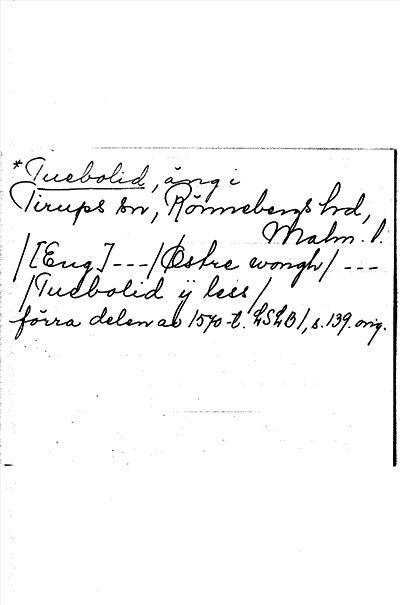 *Tuebolid, äng i
Tirups sn, Rönnebergs hd,
Malm. l.
/[Eng] --- / Østre wongh / ---
/Tuebolid ij less /
förra delen av 1570-t. LSLB 1, s. 139. orig.